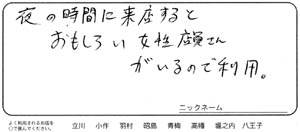 夜の時間に来店すると
おもしろい女性店員さん
がいるので利用。
ニックネーム
よく利用されるお店を
○で囲んでください。
立川 小作 羽村 昭島 青梅 高幡 堀之内 八王子